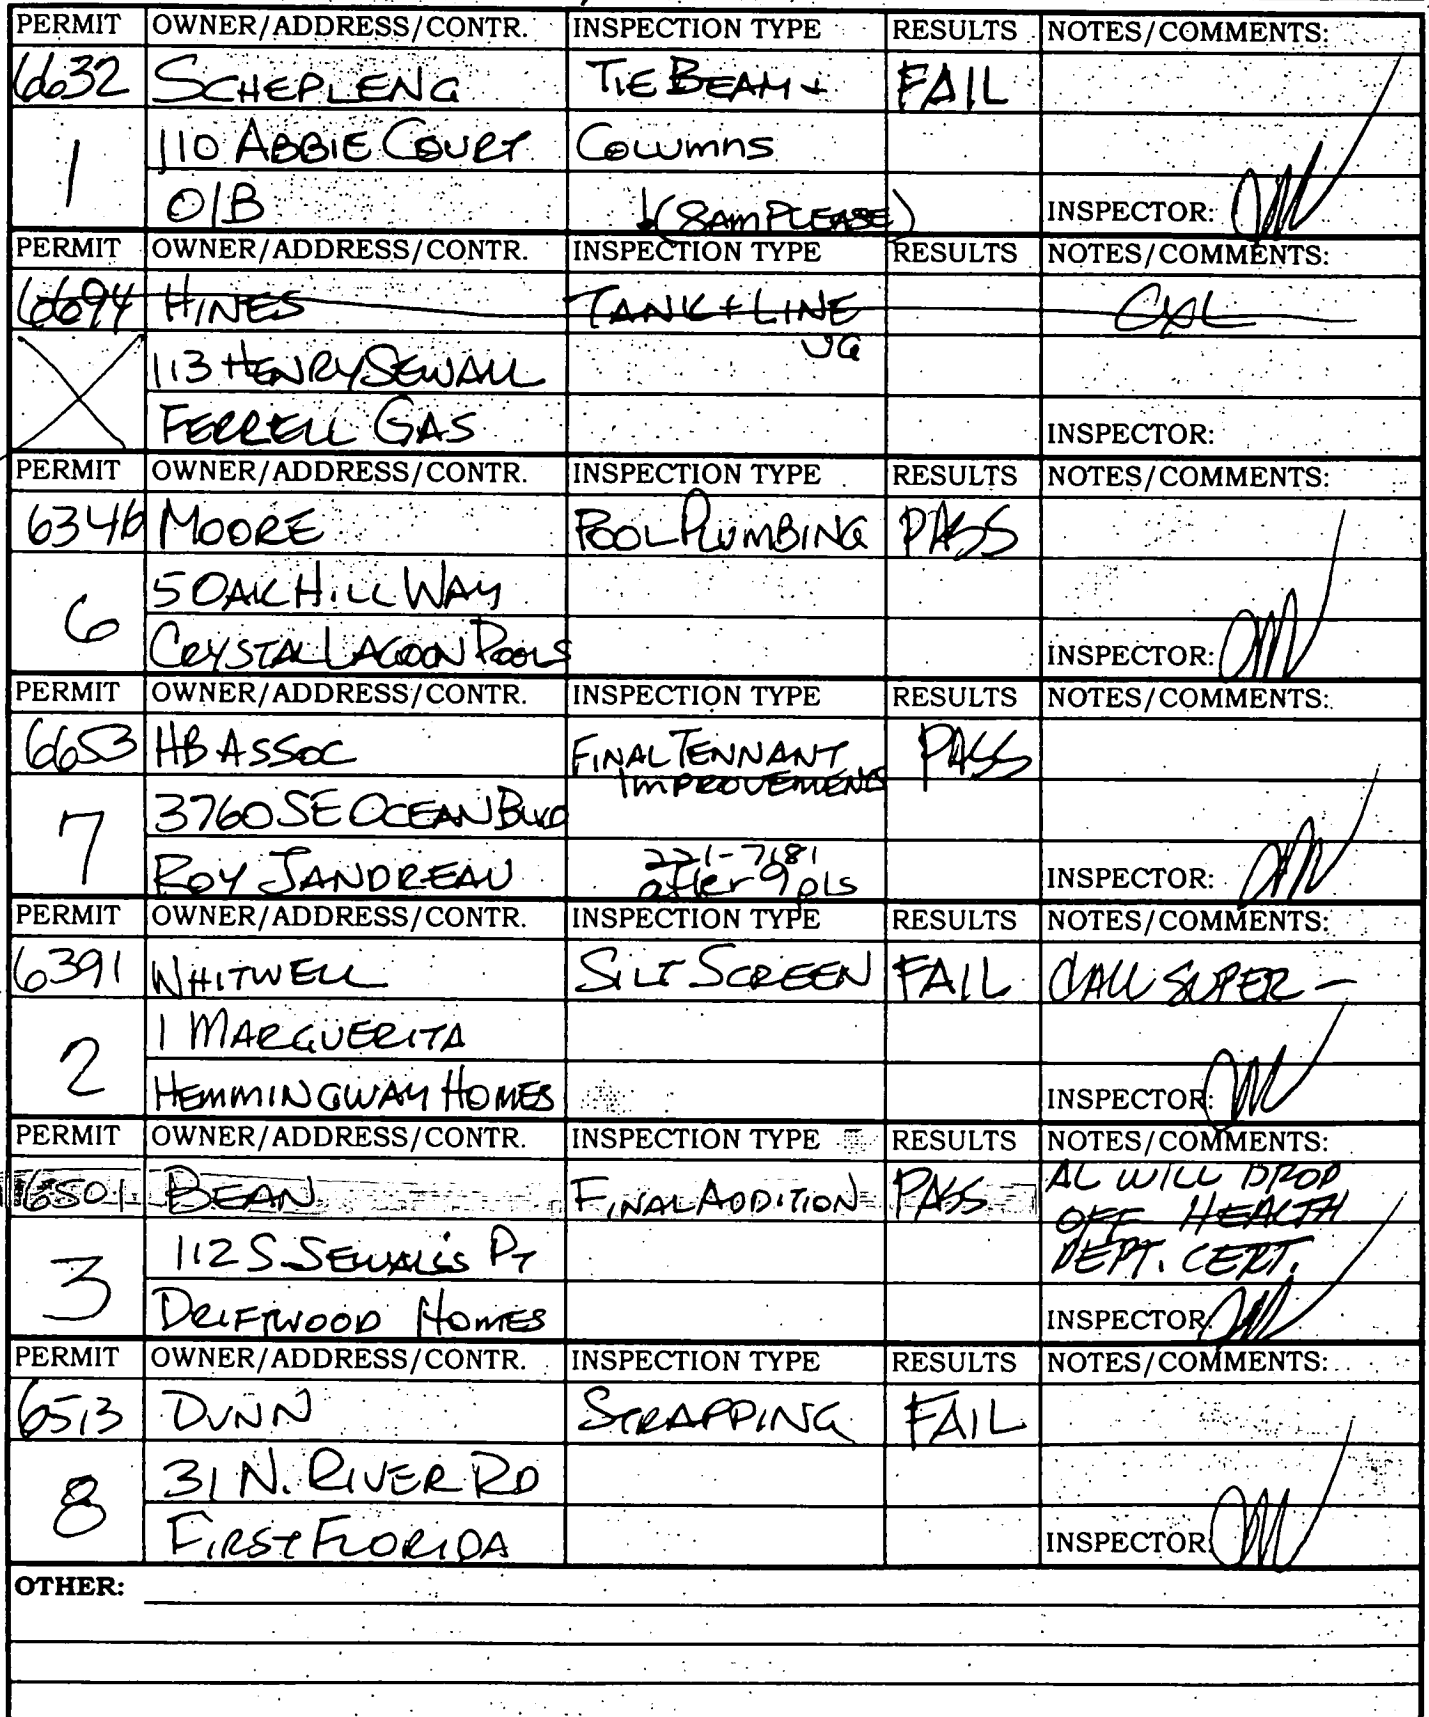 PERMIT OWNER/ADDRESS/CONTR. INSPECTION TYPE RESULTS NOTES/COMMENTS:
6632 SCHEPLENG TIE BEAM + FAIL
1 110 ABBIE COURT COLUMNS
O/B (8AM PLEASE) INSPECTOR:
PERMIT OWNER/ADDRESS/CONTR. INSPECTION TYPE RESULTS NOTES/COMMENTS:
6694 HINES TANK + LINE CXL
UG
113 HENRY SEWALL
FERRELL GAS INSPECTOR:
PERMIT OWNER/ADDRESS/CONTR. INSPECTION TYPE RESULTS NOTES/COMMENTS:
6346 MOORE POOL PLUMBING PASS
6 5 OAK HILL WAY
CRYSTAL LAGOON POOLS INSPECTOR:
PERMIT OWNER/ADDRESS/CONTR. INSPECTION TYPE RESULTS NOTES/COMMENTS:
6653 HB ASSOC FINAL TENNANT PASS
IMPROVEMENTS
7 3760 SE OCEAN BLVD
ROY JANDREAU 221-7181
after 9 pls INSPECTOR:
PERMIT OWNER/ADDRESS/CONTR. INSPECTION TYPE RESULTS NOTES/COMMENTS:
6391 WHITWELL SILT SCREEN FAIL CALL SUPER -
2 1 MARGUERITA
HEMMINGWAY HOMES INSPECTOR:
PERMIT OWNER/ADDRESS/CONTR. INSPECTION TYPE RESULTS NOTES/COMMENTS:
6501 BEAN FINAL ADDITION PASS AL WILL DROP
OFF HEALTH
3 112 S. SEWALL'S PT DEPT. CERT.
DRIFTWOOD HOMES INSPECTOR:
PERMIT OWNER/ADDRESS/CONTR. INSPECTION TYPE RESULTS NOTES/COMMENTS:
6513 DUNN STRAPPING FAIL
8 31 N. RIVER RD
FIRST FLORIDA INSPECTOR:
OTHER: